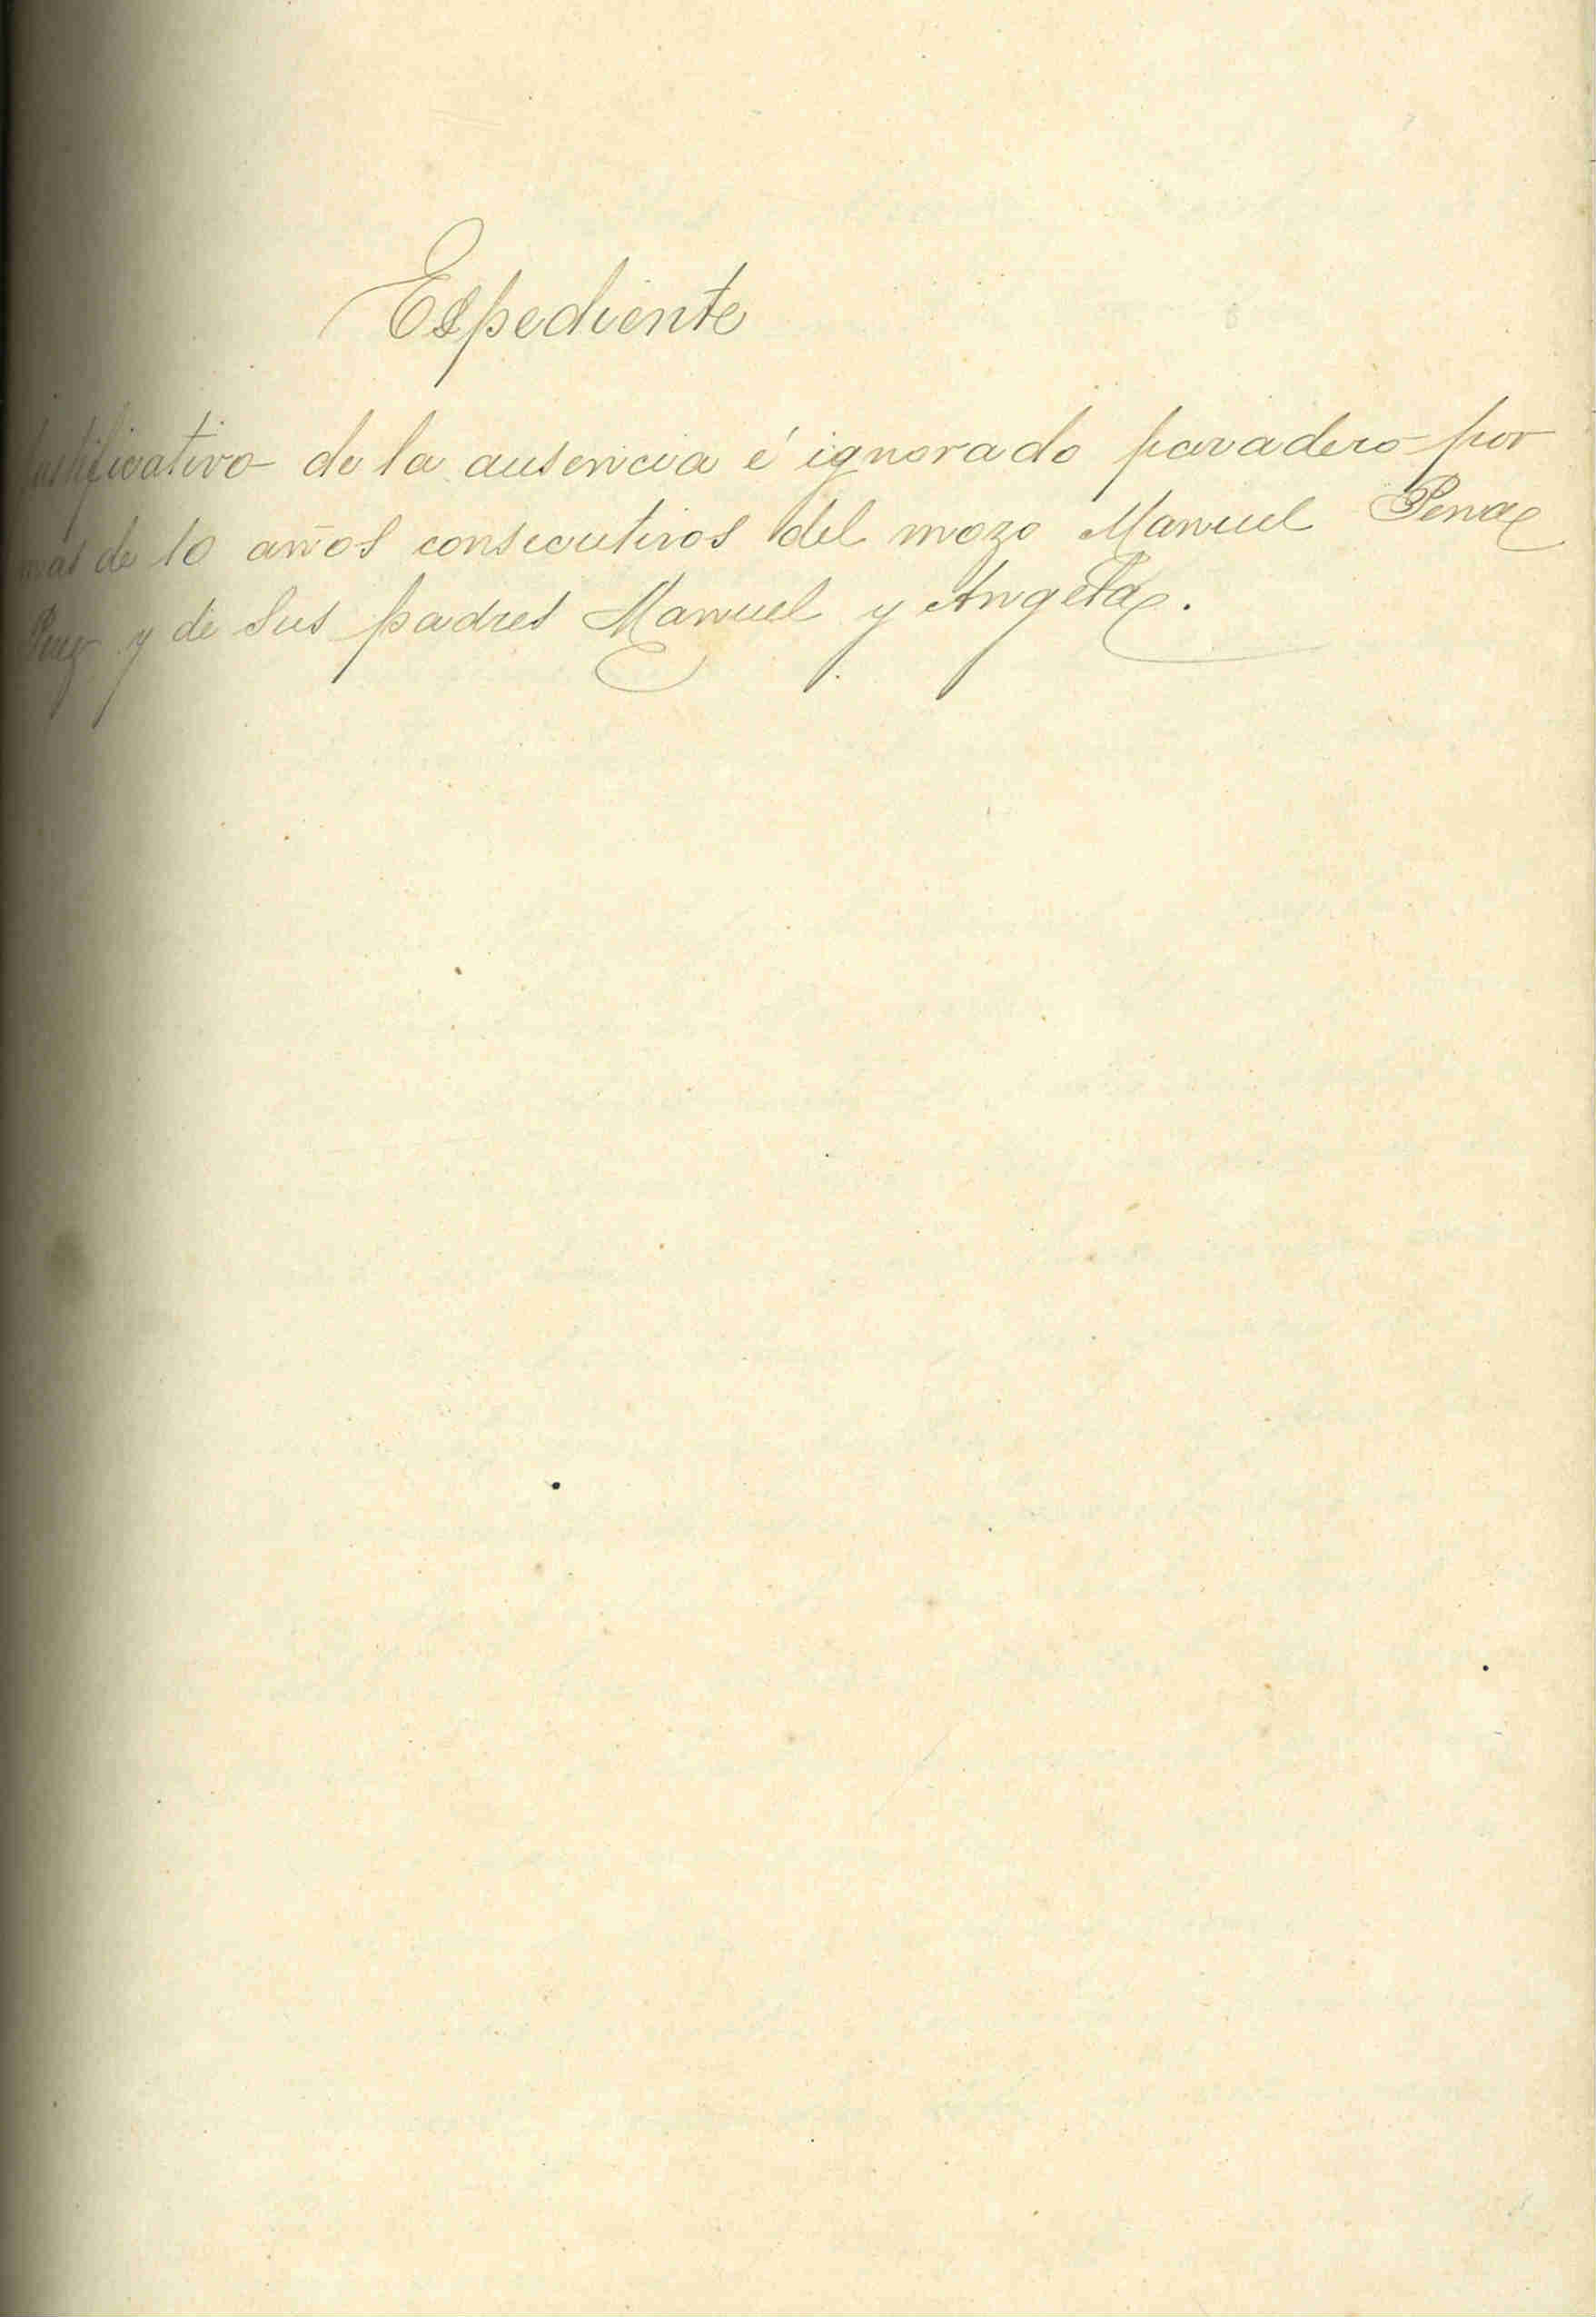 Espediente
Justificativo de la ausencia é ignorado paradero por
mas de 10 años consecutivos del mozo Manuel Pena
y de sus padres Manuel y Angela.